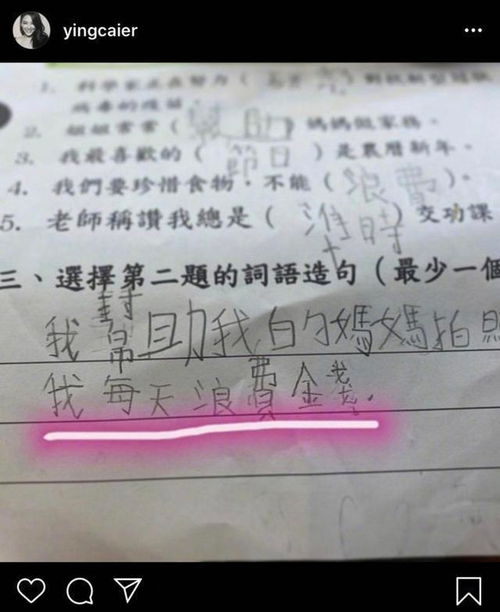 yingcaier
1. 科學家正在努力(
病毒的疫苗。
2. 姐姐常常( 幫助 )媽媽做家務。
3. 我最喜歡的( 節日 )是農曆新年。
4. 我們要珍惜食物,不能( 浪費 )。
5. 老師稱讚我總是( 準時 )交功課
三、選擇第二題的詞語造句(最少一個
我幫助我的媽媽拍照
我每天浪費金錢。